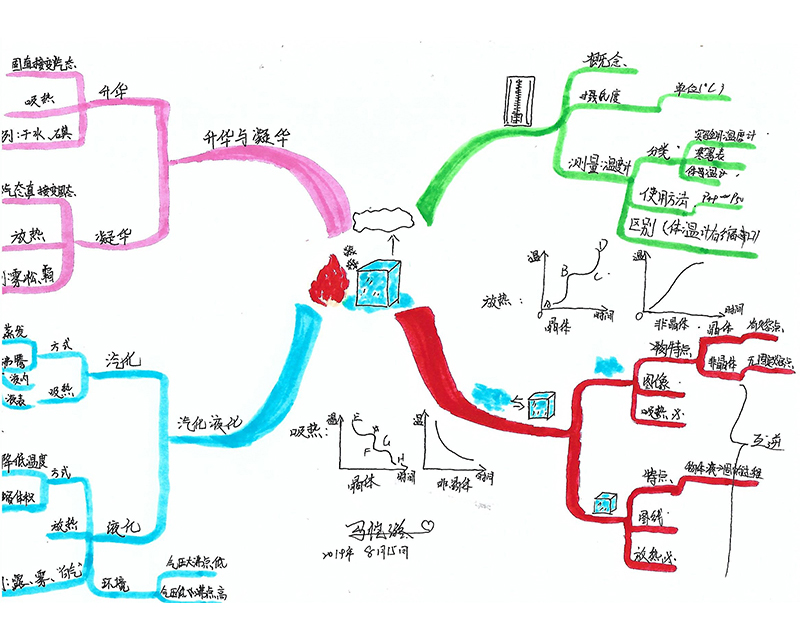 固直接变气态
吸热
升华
列:干冰、碘
升华与凝华
气态直接变固态
放热
凝华
雾淞、霜
概念
摄氏度
单位(℃)
测量:温度计
分类
实验用温度计
寒暑表
体温计
使用方法
P49—P50
区别
放热:
温
A
B
C
D
时间
晶体
温
时间
非晶体
特点
晶体
非晶体
图像
吸热
互逆
特点
图线
放热
蒸发
沸腾
方式
汽化
液内
液表
吸热
汽化液化
降低温度
方式
放热
液化
露、雾、"白气"
环境
气压大沸点低
气压低沸点高
吸热:
温
E
F
G
H
时间
晶体
温
时间
非晶体
2019年 8月15日